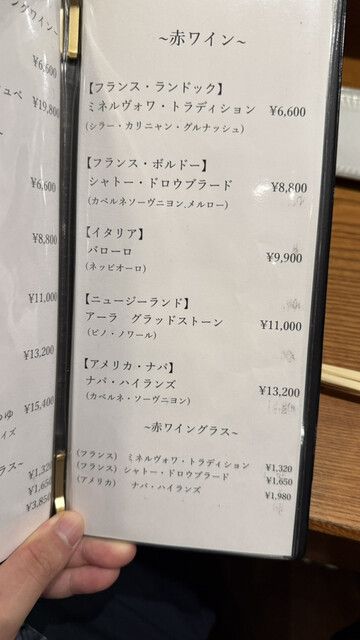 ングワイン~
¥6,600
ュベ ¥19,800
¥6,600
¥8,800
¥11,000
¥13,200
¥15,400
つゆ
イズ
ラス~
¥1,320
¥1,650
¥3,850
~赤ワイン~
【フランス・ランドック】
ミネルヴォワ・トラディション ¥6,600
(シラー・カリニャン・グルナッシュ)
【フランス・ボルドー】
シャトー・ドロウブラード ¥8,800
(カベルネソーヴニヨン.メルロー)
【イタリア】
バローロ ¥9,900
(ネッビオーロ)
【ニュージーランド】
アーラ グラッドストーン ¥11,000
(ピノ・ノワール)
【アメリカ・ナパ】
ナパ・ハイランズ ¥13,200
(カベルネ・ソーヴニヨン)
~赤ワイングラス~
(フランス) ミネルヴォワ・トラディション ¥1,320
(フランス) シャトー・ドロウブラード ¥1,650
(アメリカ) ナパ・ハイランズ ¥1,980